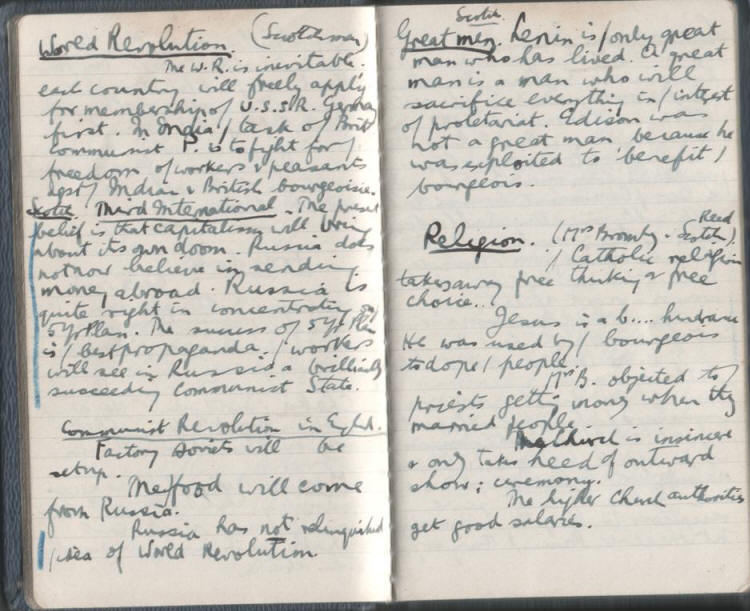 World Revolution. (Scotchman)
The W.R. is inevitable.
each country will freely apply
for membership of U.S.S.R. Germany
first. In India / task of Brit
Communist P. is to fight for /
freedom of workers & peasants
agst / Indian & British bourgeoisie.
Scotch Third International. The present
belief is that capitalism will bring
about its own doom. Russia does
not now believe in sending
money abroad. Russia is
quite right in concentrating on
5 Yr Plan. The success of 5 Yr Plan
is / best propaganda. / workers
will see in Russia a brilliantly
succeeding Communist State.
Communist Revolution in Engld.
Factory Soviets will be
set up.
The food will come
from Russia.
Russia has not relinquished
/ idea of World Revolution.
Scotch
Great men. Lenin is / only great
man who has lived. A great
man is a man who will
sacrifice everything in / interest
of proletariat. Edison was
not a great man because he
was exploited to benefit /
bourgeois.
Reed
Religion. (Mrs Bromby - Scotch)
/ Catholic religion
takes away free thinking & free
choice.
Jesus is a b.... hindrance
He was used by / bourgeois
to dope / people.
Mrs B. objected to /
priests getting money when they
married people.
The Church is insincere
& only takes heed of outward
show; ceremony.
The higher Church authorities
get good salaries.